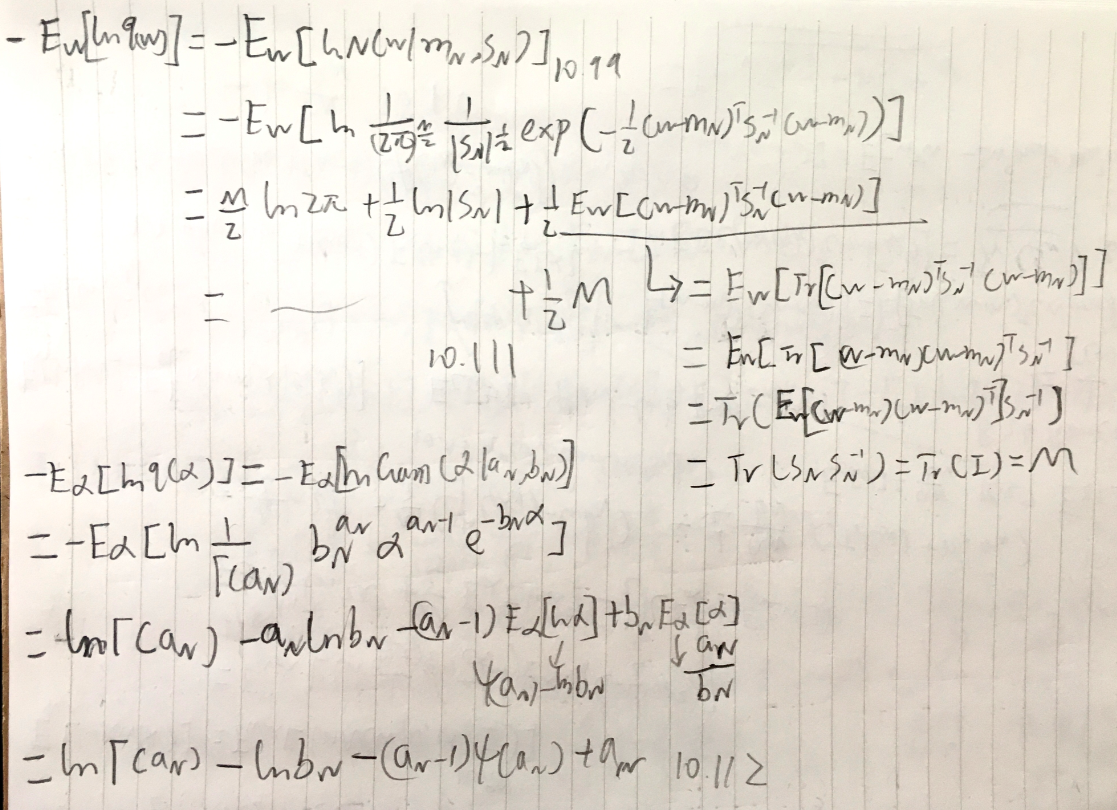 - E_w[ln q(w)] = -E_w[ln N(w|m_N, S_N)] 10.99
= -E_w[ln \frac{1}{(2π)^{\frac{M}{2}}} \frac{1}{|S_N|^{\frac{1}{2}}} exp(-\frac{1}{2}(w-m_N)^T S_N^{-1}(w-m_N))]
= \frac{M}{2} ln 2π + \frac{1}{2} ln|S_N| + \frac{1}{2} E_w[(w-m_N)^T S_N^{-1}(w-m_N)]
= + \frac{1}{2} M
10.111
↳ = E_w[Tr[(w-m_N)^T S_N^{-1}(w-m_N)]]
= E_w[Tr[(w-m_N)(w-m_N)^T S_N^{-1}]
= Tr(E_w[(w-m_N)(w-m_N)^T]S_N^{-1}]
= Tr(S_N S_N^{-1}) = Tr(I) = M
-E_α[ln q(α)] = -E_α[ln Gam(α|a_N, b_N)]
= -E_α[ln \frac{1}{Γ(a_N)} b_N^{a_N} α^{a_N-1} e^{-b_N α}]
= ln Γ(a_N) - a_N ln b_N - (a_N-1) E_α[ln α] + b_N E_α[α]
↓ ↓
ψ(a_N) - ln b_N \frac{a_N}{b_N}
= ln Γ(a_N) - ln b_N - (a_N-1)ψ(a_N) + a_N 10.112